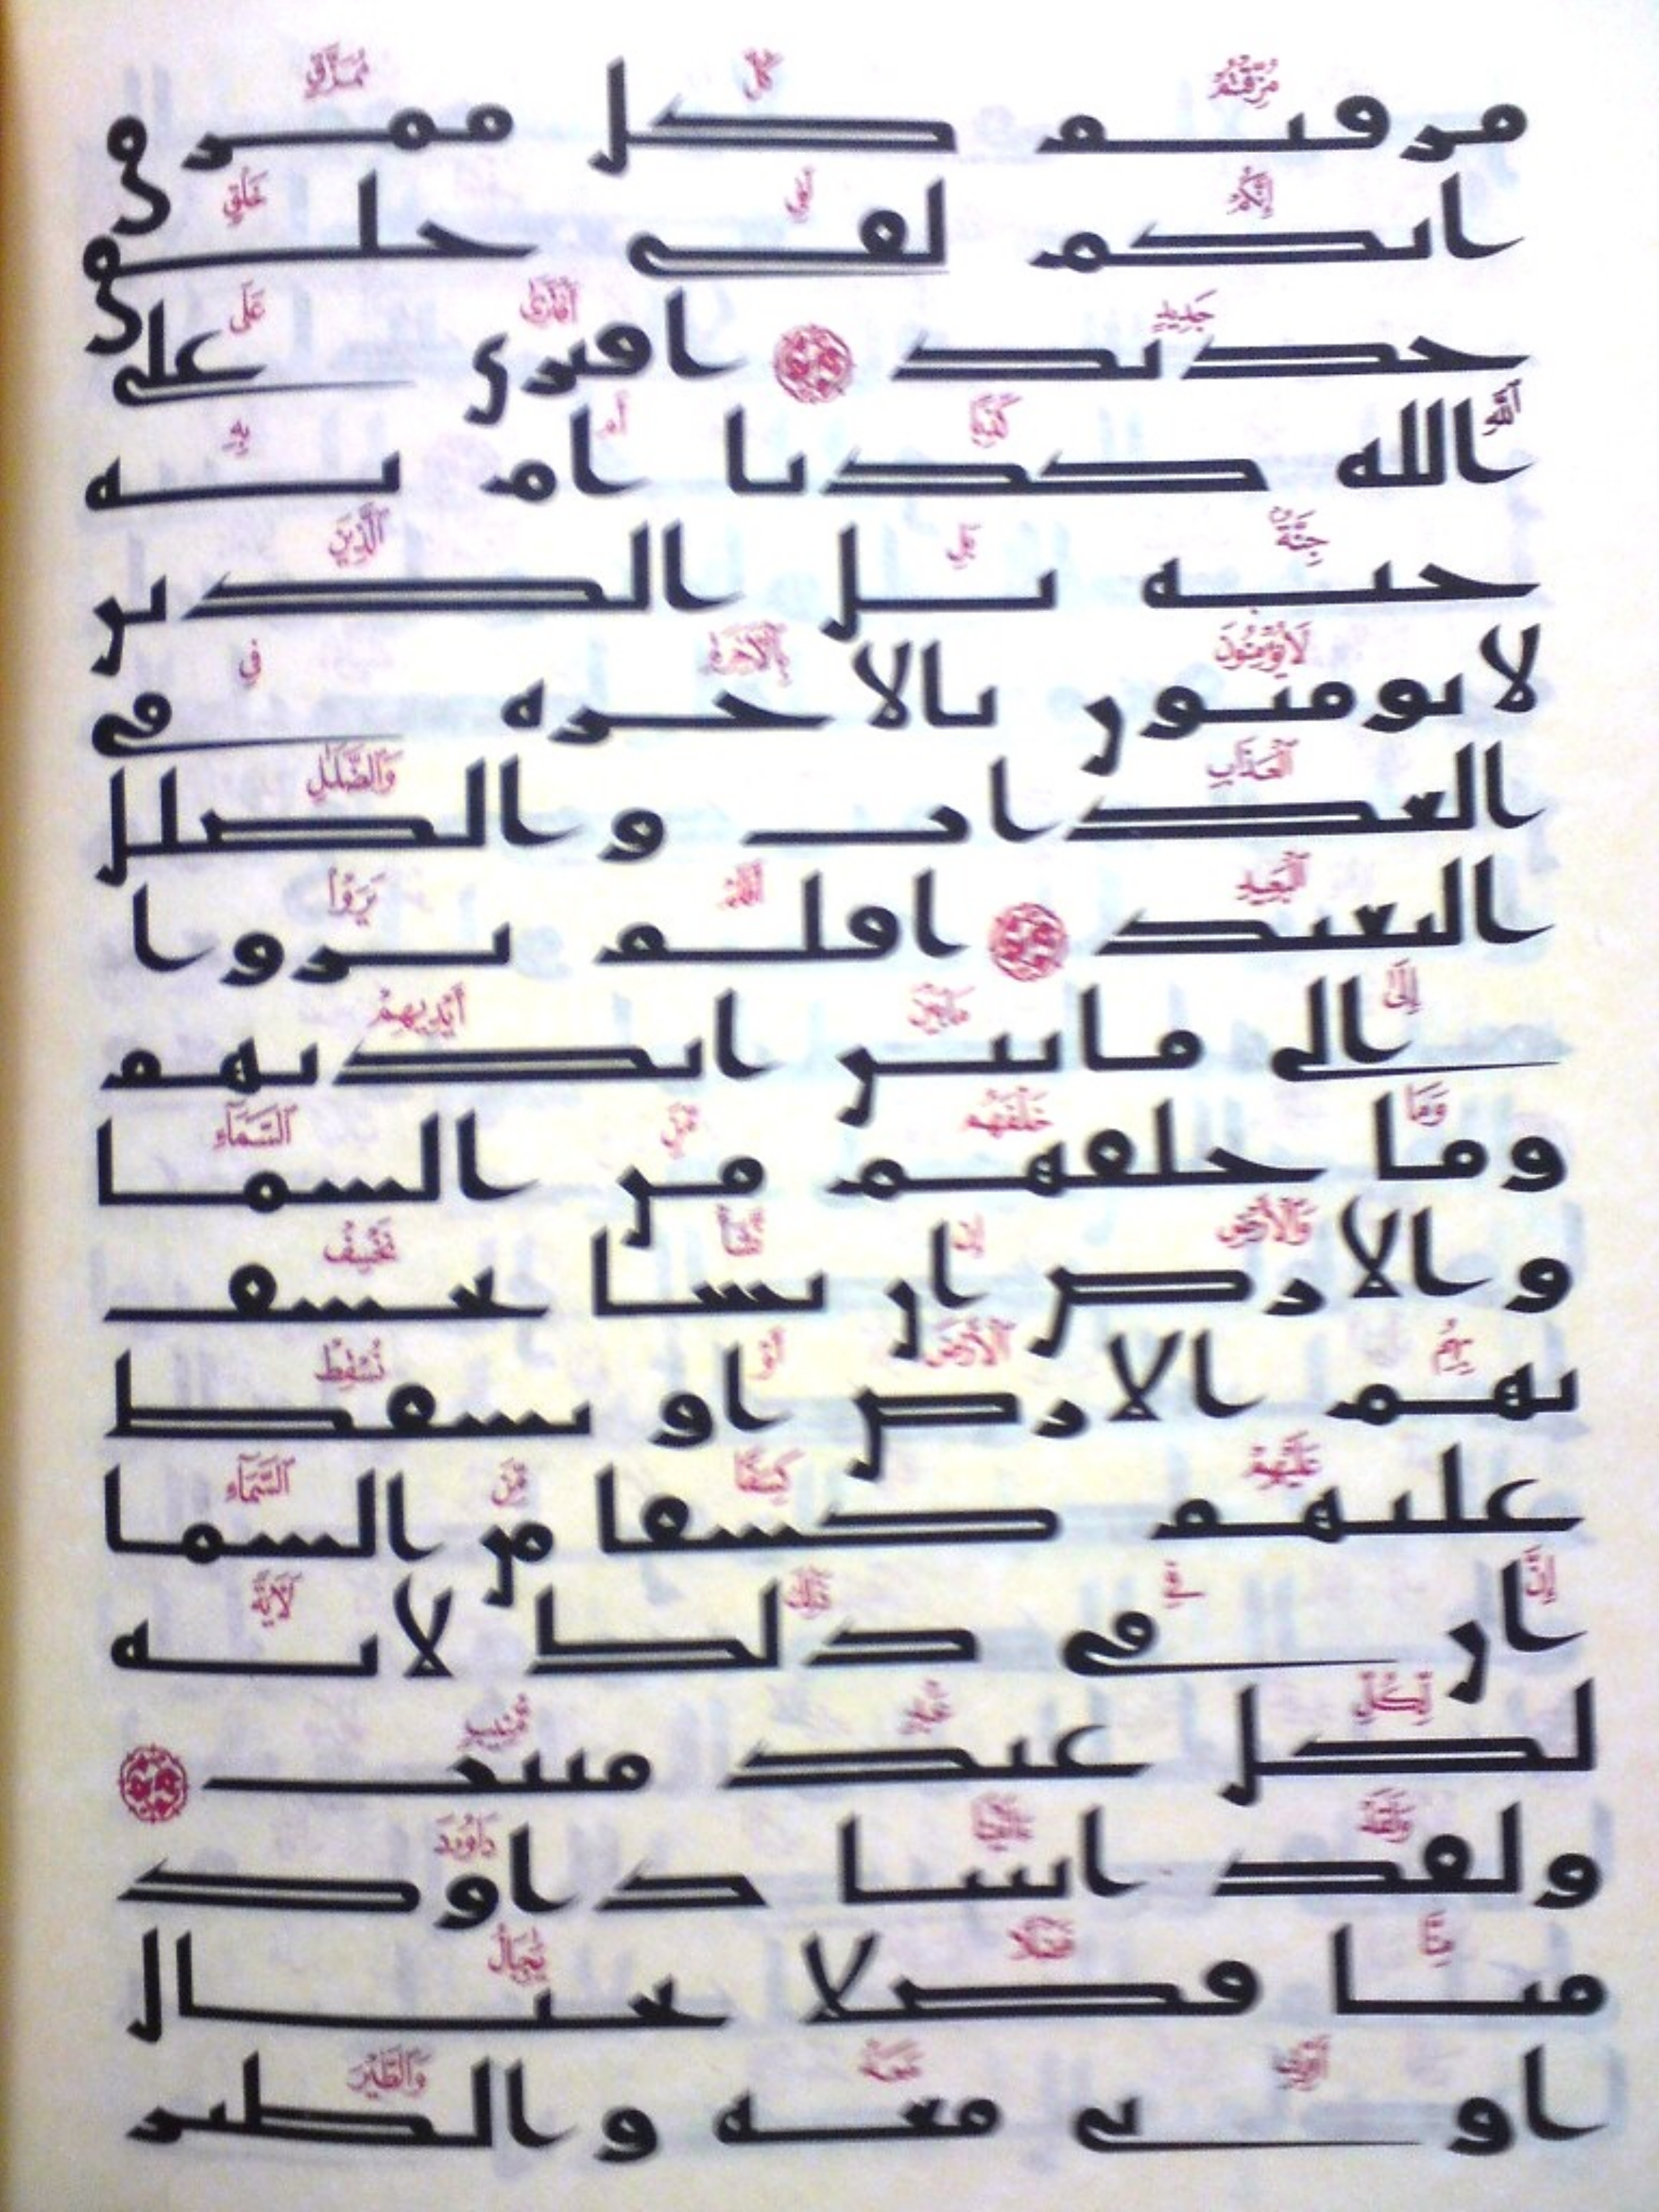 مزقتم كل ممزق
انكم لفي خلق
جديد افترى على
الله كذبا ام به
جنة بل الذين
لا يومنون بالاخرة في
العذاب والضلل
البعيد افلم يروا
الى ما بين ايديهم
وما خلفهم من السما
والارض ان نشا نخسف
بهم الارض او نسقط
عليهم كسفا من السما
ان في ذلك لاية
لكل عبد منيب
ولقد اتينا داود
منا فضلا يجبال
اوبي معه والطير